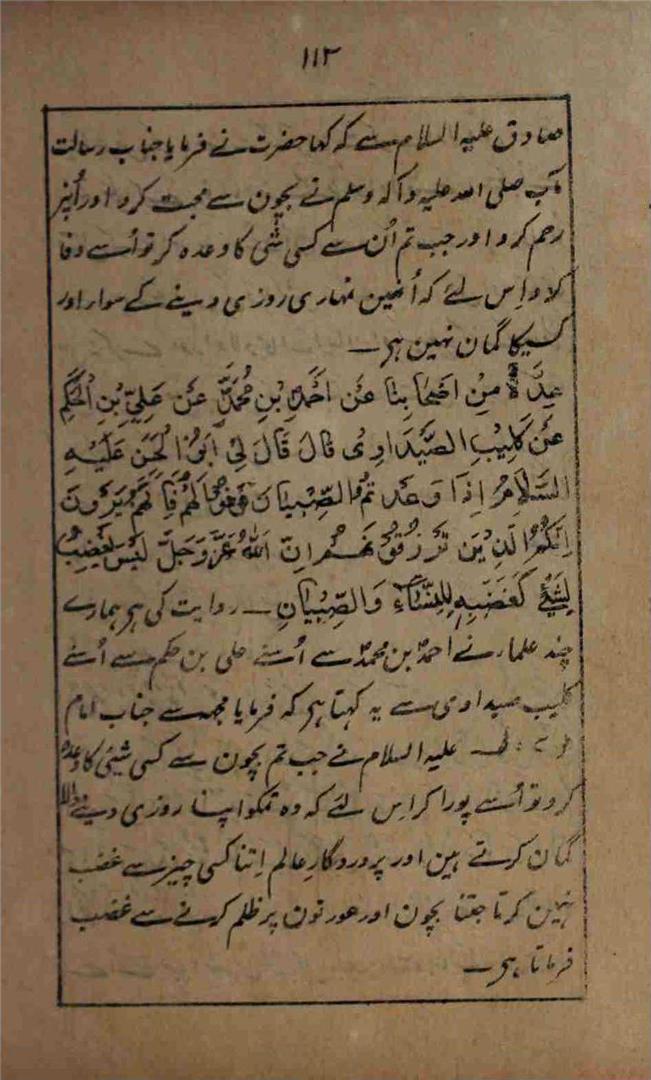 ۱۱۲
صادق علیہ السلام سے کہ کہا حضرت نے فرمایا جناب رسالت
مآب صلی اللہ علیہ وآلہ وسلم نے بچون سے محبت کرو اور اُنپر
رحم کرو اور جب تم اُن سے کسی شی کا وعدہ کرو تو اُسے وفا
کرو اِس لئے کہ اُنہین تمہاری روزی دینے کے سوا اور
کسیکا گمان نہین ہے ــ
عِدَّةٌ مِنْ اَصْحَابِنَا عَنْ اَحْمَدَ بْنِ مُحَمَّدٍ عَنْ عَلِيِّ بْنِ الْحَكَمِ
عَنْ كُلَيْبِ الصَّيْدَاوِى قَالَ قَالَ لِيْ اَبُوْ الْحَسَنِ عَلَيْهِ
السَّلَامُ اِذَا وَعَدْتُمُ الصِّبْيَانَ فَفُوْا لَهُمْ فَاِنَّهُمْ يَرَوْنَ
اِنَّكُمُ الَّذِيْنَ تَرْزُقُوْنَهُمْ اِنَّ اللّٰهَ عَزَّ وَجَلَّ لَيْسَ يَغْضَبُ
لِشَيْءٍ كَغَضَبِهٖ لِلنِّسَاءِ وَالصِّبْيَانِ ــ روایت کی ہے ہمارے
چند علما نے احمد بن محمد سے اُسنے علی بن حکم سے اُسنے
کلیب صیداوی سے یہ کہتا ہے کہ فرمایا مجھسے جناب امام
علیہ السلام نے جب تم بچون سے کسی شیئی کا وعدہ
کرو تو اُسے پورا کرو اِس لئے کہ وہ تمکو اپنا روزی دینے والا
گمان کرتے ہین اور پروردگارِ عالم اِتنا کسی چیز سے غضب
نہین کرتا جتنا بچون اور عورتون پر ظلم کرنے سے غضب
فرماتا ہے ــ